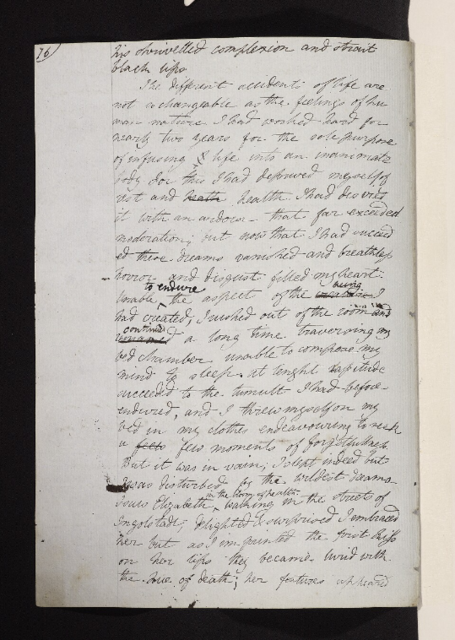 76
his shrivelled complexion and strait
black lips.
The different accidents of life are
not so changeable as the feelings of hu
man nature I had worked hard for
nearly two years for the sole purpose
of infusing life into an inanimate
body for this I had deprived myself of
rest and health health I had desired
it with an ardour that far exceeded
moderation; but now that I had succeed
ed these dreams vanished and breathless
horror and disgust filled my heart.
to endure being
Unable the aspect of the creature I
had created, I rushed out of the room and
continued
a long time traversing my
bed chamber unable to compose my
mind to sleep. at lenght lassitude
succeeded to the tumult I had before
endured, and I threw myself on my
bed in my clothes endeavouring to seek
a few moments of forgetfullness
But it was in vain; I slept indeed but
I was disturbed by the wildest dreams
the bloom of health
I saw Elizabeth walking in the streets of
Ingolstadt. Delighted & surprised I embraced
her but as I imprinted the first kiss
on her lips they became livid with
the hue of death; her features appeared